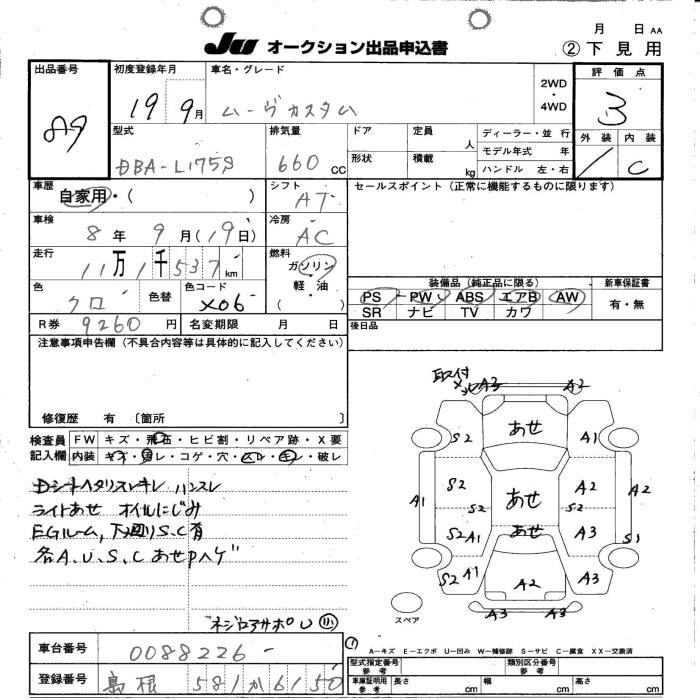 JU オークション出品申込書
月 日 AA
② 下見用
出品番号
89
初度登録年月
19 9月
車名・グレード
ムーヴカスタム
2WD
・
4WD
評価点
3
外装 内装
/ C
型式
DBA-L175S
排気量
660 CC
ドア
形状
定員 人
積載 kg
ディーラー・並行
モデル年式 年
ハンドル 左・右
車歴
自家用・( )
シフト
AT
セールスポイント(正常に機能するものに限ります)
車検
8年 9月(19日)
冷房
AC
走行
11万1千537km
燃料
ガソリン・
軽油・
( )
色
クロ
色替
色コード
X06
装備品(純正品に限る)
PS PW ABS エアB AW
SR ナビ TV カワ
新車保証書
有・無
R券 9260円
名変期限 月 日
後日品
注意事項申告欄(不具合内容等は具体的に記入してください)
修復歴 有 〔箇所 〕
検査員
記入欄
FW キズ・飛石・ヒビ割・リペア跡・X要
内装 キズ・汚レ・コゲ・穴・スレ・キレ・破レ
Dシートヘタリスレキレ ハンスレ
ライトあせ オイルにじみ
EGルーム,下廻りS.C有
各A.U.S.CあせPハゲ
取付
A3 A2
S2 あせ A1
A1 S2 S2 あせ A2 S2 A2
S2 A1 あせ A3 S1
S2 A1 A2 A3
A3 A3
スペア
A—キズ E—エクボ U—凹み W—補修跡 S—サビ C—腐食 XX—交換済
車台番号
0088226
登録番号
島根 581か6150
型式指定番号
参考
類別区分番号
参考
車庫証明用
参考
長さ cm
幅 cm
高さ cm